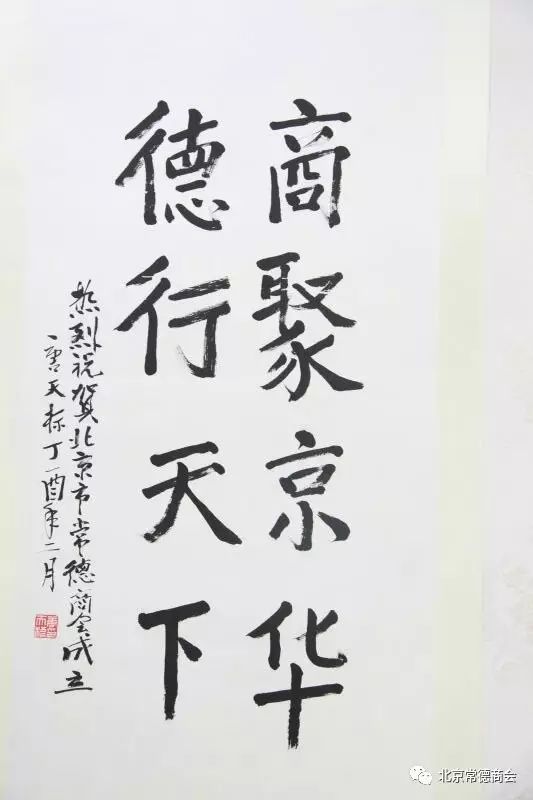 商聚京华
德行天下
热烈祝贺北京市常德商会成立
唐天标丁酉年二月
北京常德商会